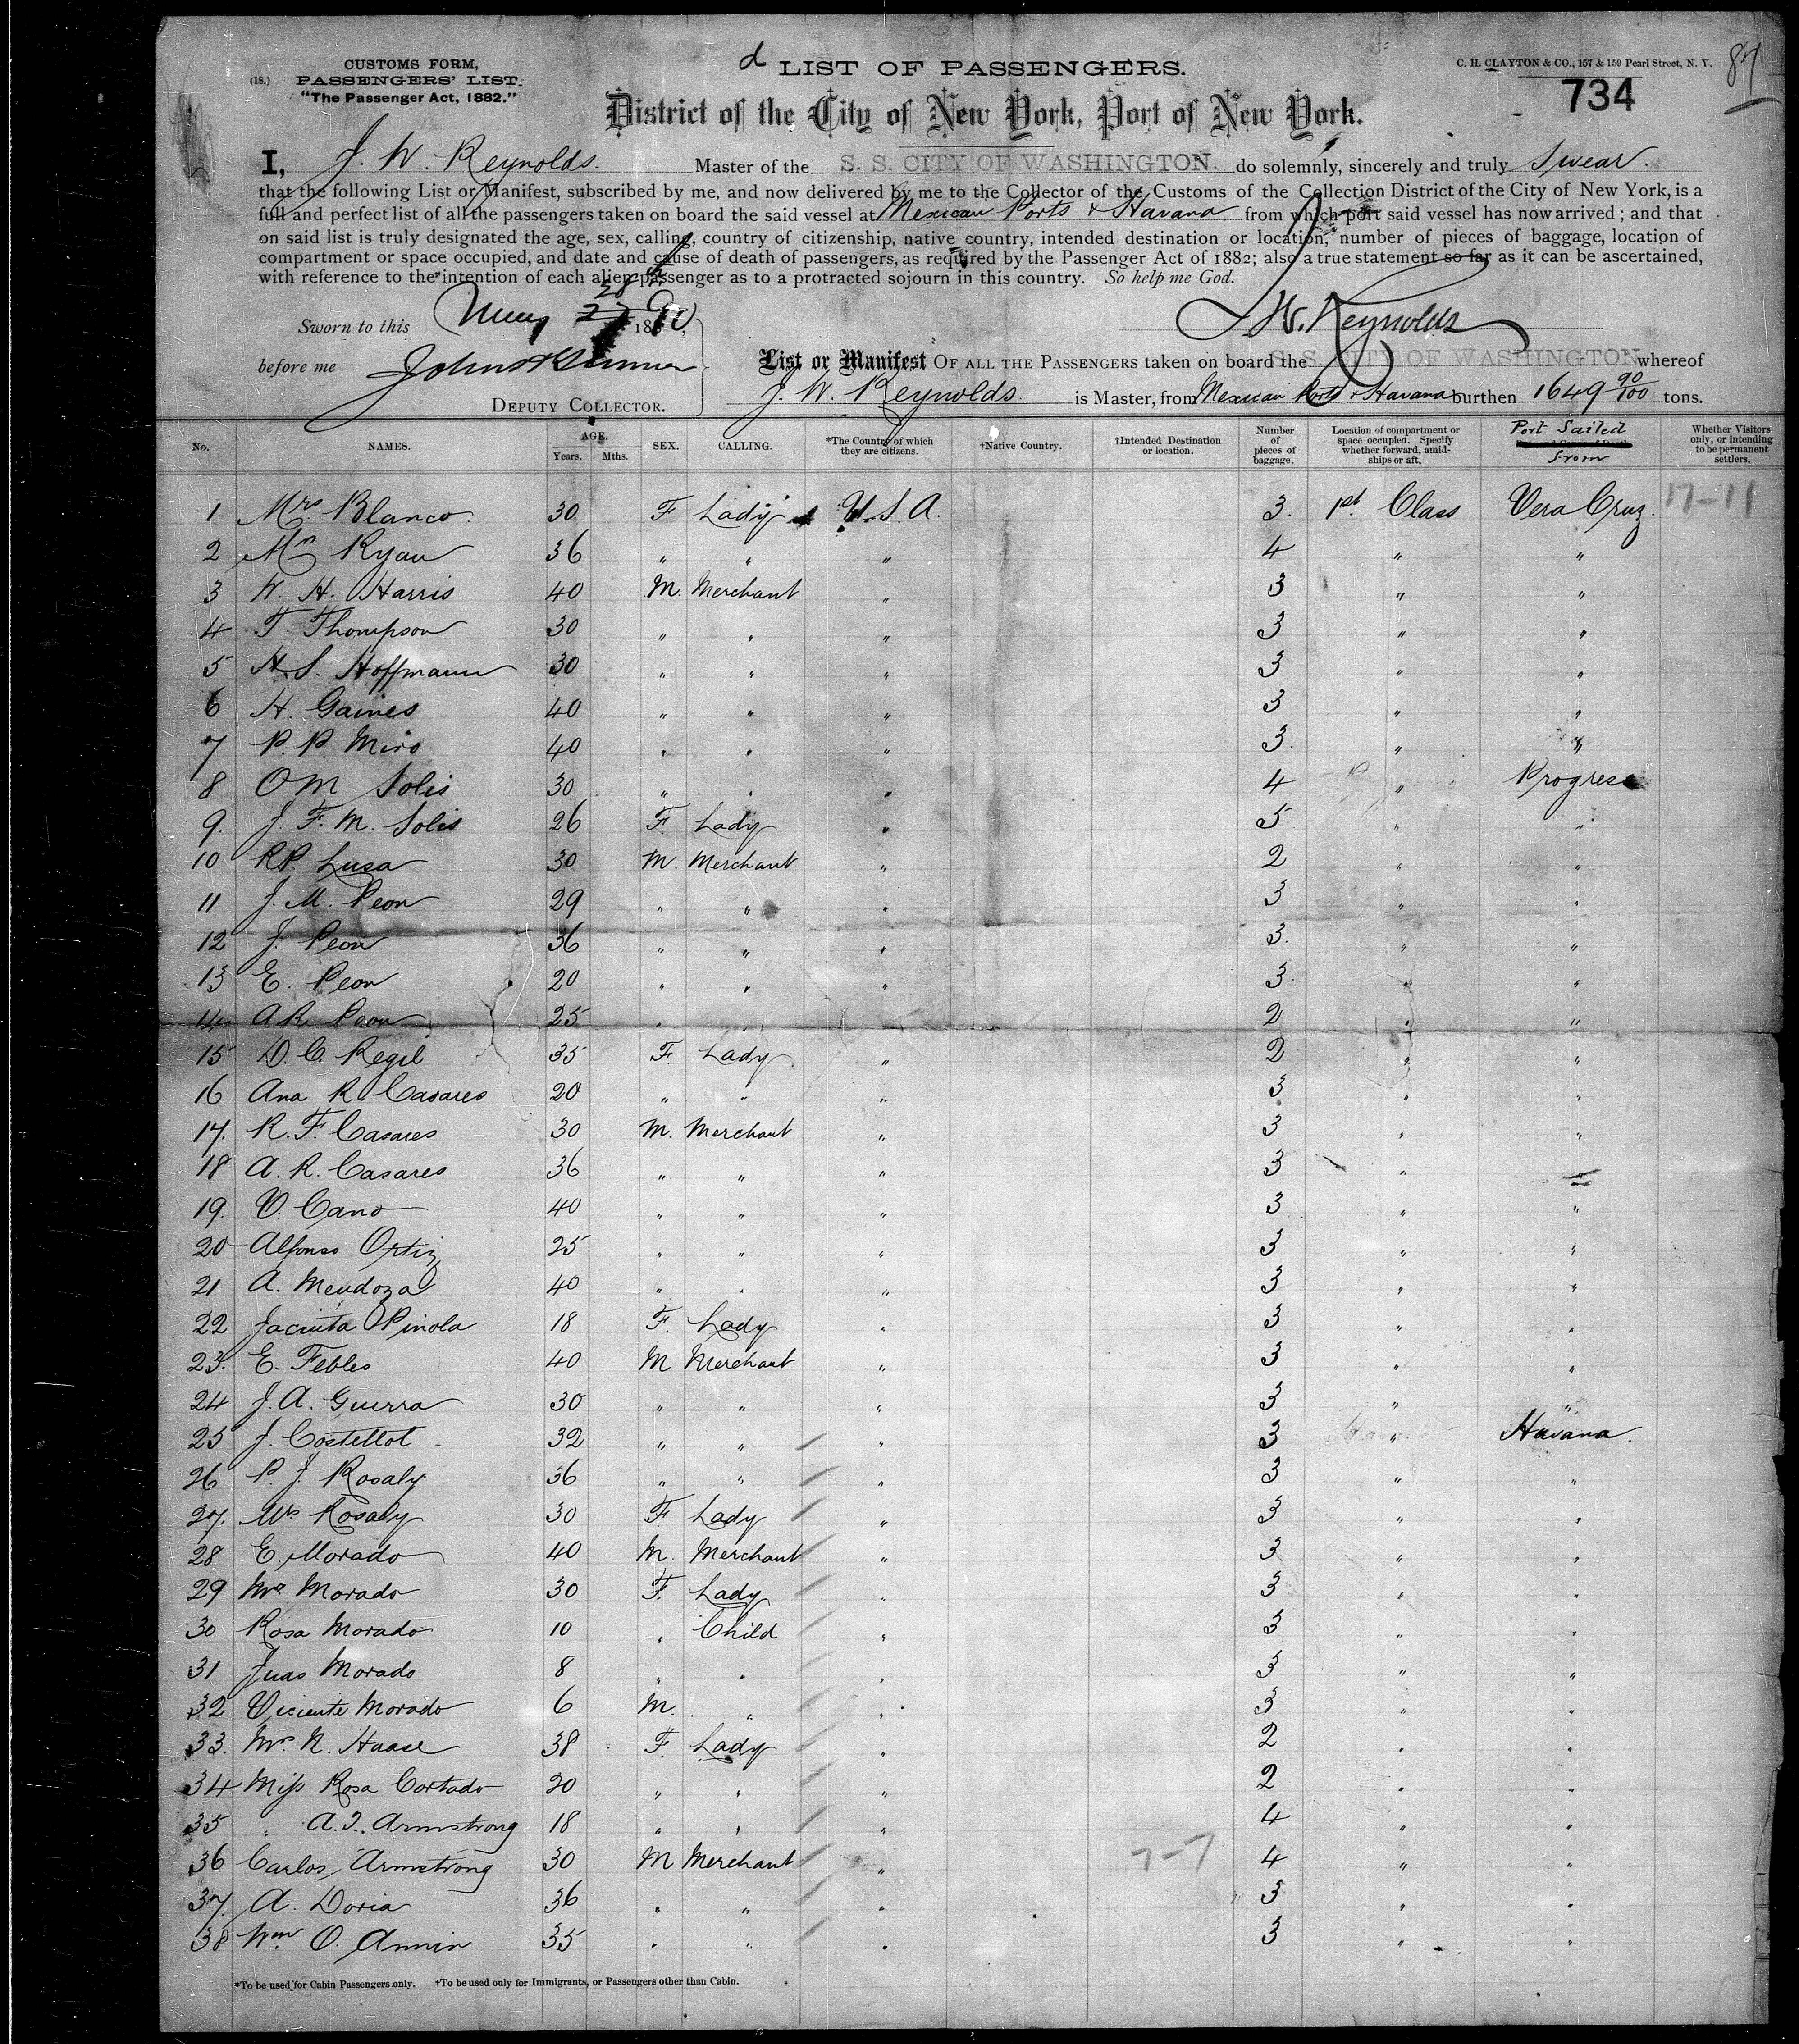 CUSTOMS FORM,
(18.) PASSENGERS' LIST.
"The Passenger Act, 1882."
d LIST OF PASSENGERS.
C. H. CLAYTON & CO., 157 & 159 Pearl Street, N. Y.
87
734
District of the City of New York, Port of New York.
I, J. W. Reynolds. Master of the S. S. CITY OF WASHINGTON. do solemnly, sincerely and truly swear.
that the following List or Manifest, subscribed by me, and now delivered by me to the Collector of the Customs of the Collection District of the City of New York, is a
full and perfect list of all the passengers taken on board the said vessel at Mexican Ports & Havana from which port said vessel has now arrived; and that
on said list is truly designated the age, sex, calling, country of citizenship, native country, intended destination or location, number of pieces of baggage, location of
compartment or space occupied, and date and cause of death of passengers, as required by the Passenger Act of 1882; also a true statement so far as it can be ascertained,
with reference to the intention of each alien passenger as to a protracted sojourn in this country. So help me God.
Sworn to this May 28th 27 1890
J. W. Reynolds
before me
DEPUTY COLLECTOR.
List or Manifest OF ALL THE PASSENGERS taken on board the S. S. CITY OF WASHINGTON whereof
J. W. Reynolds. is Master, from Mexican Ports & Havana burthen 1649 90/100 tons.
No. NAMES. AGE. Years. Mths. SEX. CALLING. *The Country of which they are citizens. †Native Country. †Intended Destination or location. Number of pieces of baggage. Location of compartment or space occupied. Specify whether forward, amidships or aft. Port Sailed from Whether Visitors only, or intending to be permanent settlers.
1 Mrs Blanco. 30 F Lady U.S.A. 3. 1st Class Vera Cruz. 17-11
2 Mrs Ryan 36 " " " 4 " "
3 W. H. Harris 40 M. Merchant " 3 " "
4 T. Thompson 30 " " " 3 " "
5 H. S. Hoffmann 30 " " " 3 " "
6 H. Gaines 40 " " " 3 " "
7 P. P. Miro 40 " " " 3. " "
8 O M Solis 30 " " " 4 " Progreso
9. J. F. M. Solis 26 F. Lady " 5 " "
10 R.P. Lusa 30 M. Merchant " 2 " "
11 J. M. Peon 29 " " " 3 " "
12 J. Peon 36 " " " 3. " "
13 E. Peon 20 " " " 3. " "
14 A R Peon 25 " " 2 " "
15 D. C. Regil 35 F. Lady " 2 " "
16 Ana R Casares 20 " " " 3 " "
17. R. F. Casares 30 M. Merchant " 3 " "
18 A. R. Casares 36 " " " 3 " "
19. V. Cano 40 " " " 3 " "
20 Alfonso Ortiz 25 " " " 3 " "
21 A. Mendoza 40 " " " 3 " "
22 Jacinta Pinola 18 F. Lady " 3 " "
23. E. Febles 40 M Merchant " 3 " "
24 J. A. Guerra 30 " " " 3 " "
25 J. Costellot 32 " " " 3 " Havana.
26 P. J. Rosaly 36 " " " 3 " "
27. Mrs Rosaly 30 F. Lady " 3 " "
28 E. Morado 40 M. Merchant " 3 " "
29 Mrs Morado 30 F. Lady " 3 " "
30 Rosa Morado 10 " Child " 3 " "
31 Juas Morado 8 " " " 3 " "
32 Viciente Morado 6 M. " " 3 " "
33. Mrs N. Haase 38 F. Lady " 2 " "
34 Miss Rosa Cortado 20 " " " 2 " "
35 " A. I. Armstrong 18 " " " 4 " "
36 Carlos Armstrong 30 M Merchant " 7-7 4 " "
37. A. Doria 36 " " " 3 " "
38 Wm O. Annin 35 " " " 3 " "
*To be used for Cabin Passengers only. †To be used only for Immigrants, or Passengers other than Cabin.